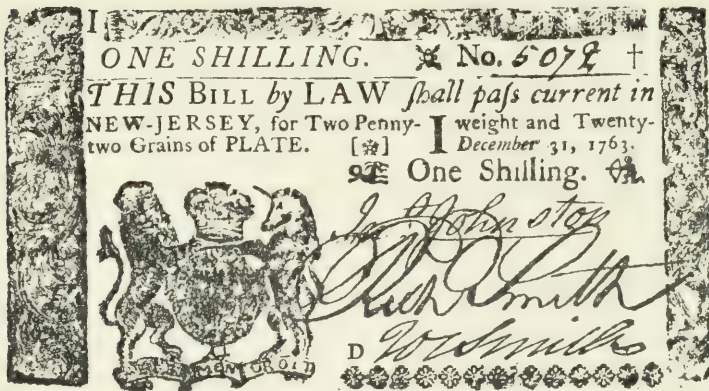 I
ONE SHILLING. No. 5072 †
THIS BILL by LAW ſhall paſs current in
NEW-JERSEY, for Two Penny- I weight and Twenty-
two Grains of PLATE. [*] December 31, 1763.
One Shilling.
Johnston
Rich Smith
D Smith
MON DROIT